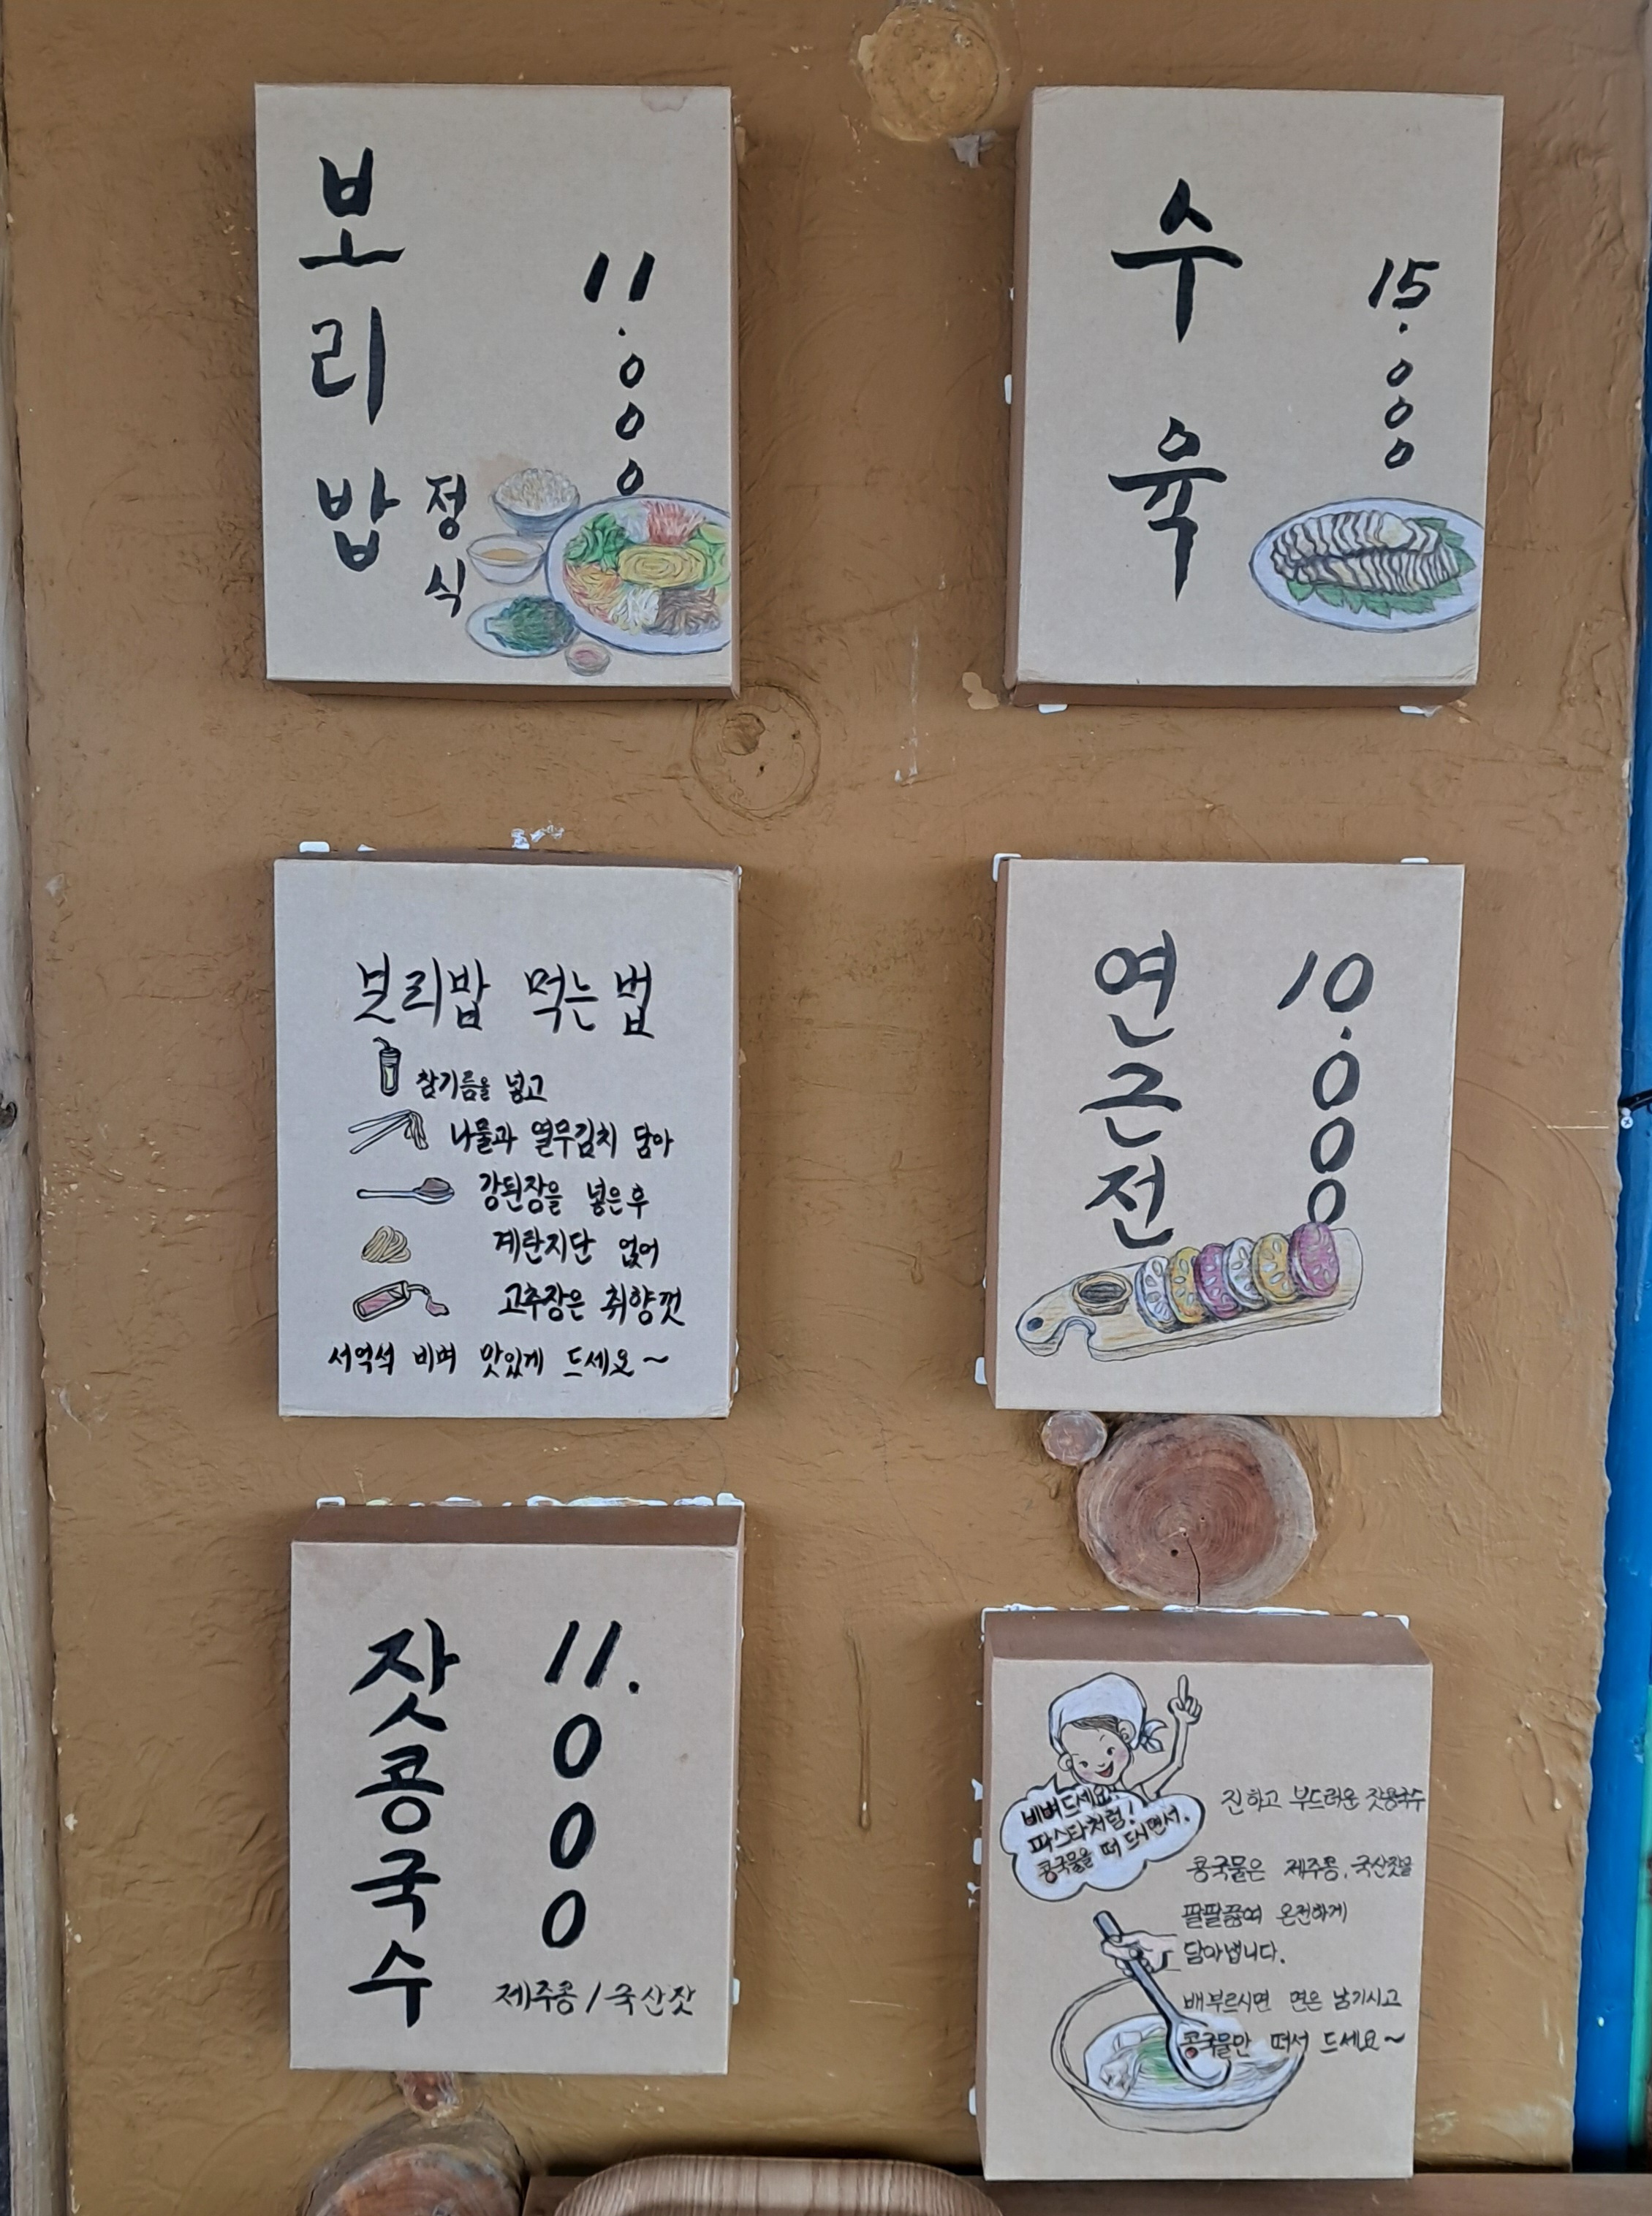 보리밥
정식
11.000
수육
15.000
보리밥 먹는법
참기름을 넣고
나물과 열무김치 담아
강된장을 넣은후
계란지단 얹어
고추장은 취향껏
서억석 비벼 맛있게 드세요~
연근전
10.000
잣콩국수
11.000
제주콩/국산잣
비벼드세요!
파스타처럼!
콩국물을 떠 드시면서.
진하고 부드러운 잣콩국수
콩국물은 제주콩, 국산잣을
팔팔끓여 온전하게
담아냅니다.
배부르시면 면은 남기시고
콩국물만 떠서 드세요~